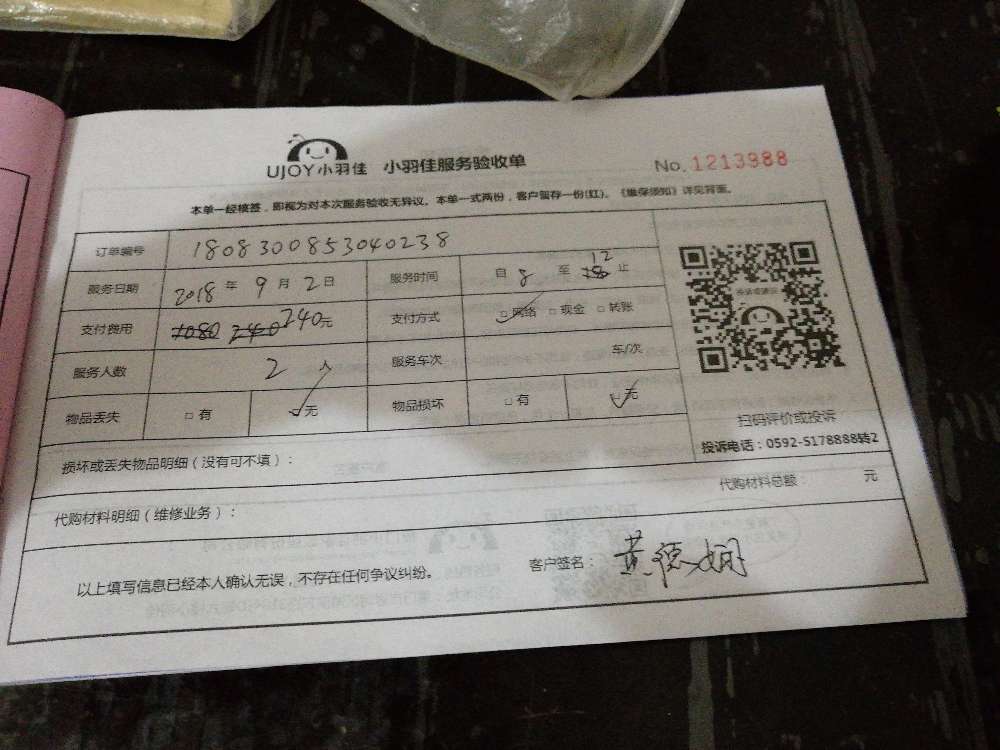 UJOY小羽佳 小羽佳服务验收单 No. 1213988
本单一经核签，即视为对本次服务验收无异议。本单一式两份，客户留存一份(红)。《维保须知》详见背面。
订单编号 1808300853040238
服务日期 2018年9月2日 服务时间 自8至12止
支付费用 1080 240 240元 支付方式 □网络 □现金 □转账
服务人数 2人 服务车次 车/次
物品丢失 □有 □无 物品损坏 □有 □无
扫码评价或投诉
投诉电话：0592-5178888转2
损坏或丢失物品明细（没有可不填）：
代购材料明细（维修业务）： 代购材料总额： 元
以上填写信息已经本人确认无误，不存在任何争议纠纷。 客户签名：黄德娴